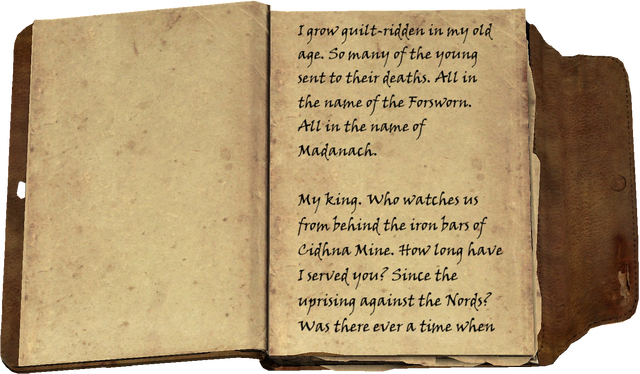 I grow guilt-ridden in my old
age. So many of the young
sent to their deaths. All in
the name of the Forsworn.
All in the name of
Madanach.

My king. Who watches us
from behind the iron bars of
Cidhna Mine. How long have
I served you? Since the
uprising against the Nords?
Was there ever a time when